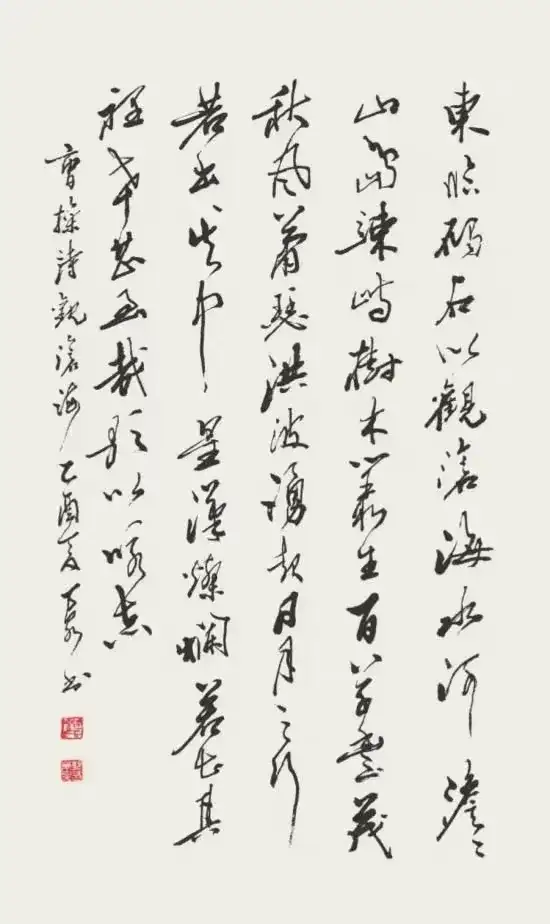 東臨碣石以觀滄海水何澹〻
山島竦峙樹木叢生百草豐茂
秋風蕭瑟洪波湧起日月之行
若出其中星漢燦爛若出其
裡幸甚至哉歌以詠志
曹操詩觀滄海乙酉夏书